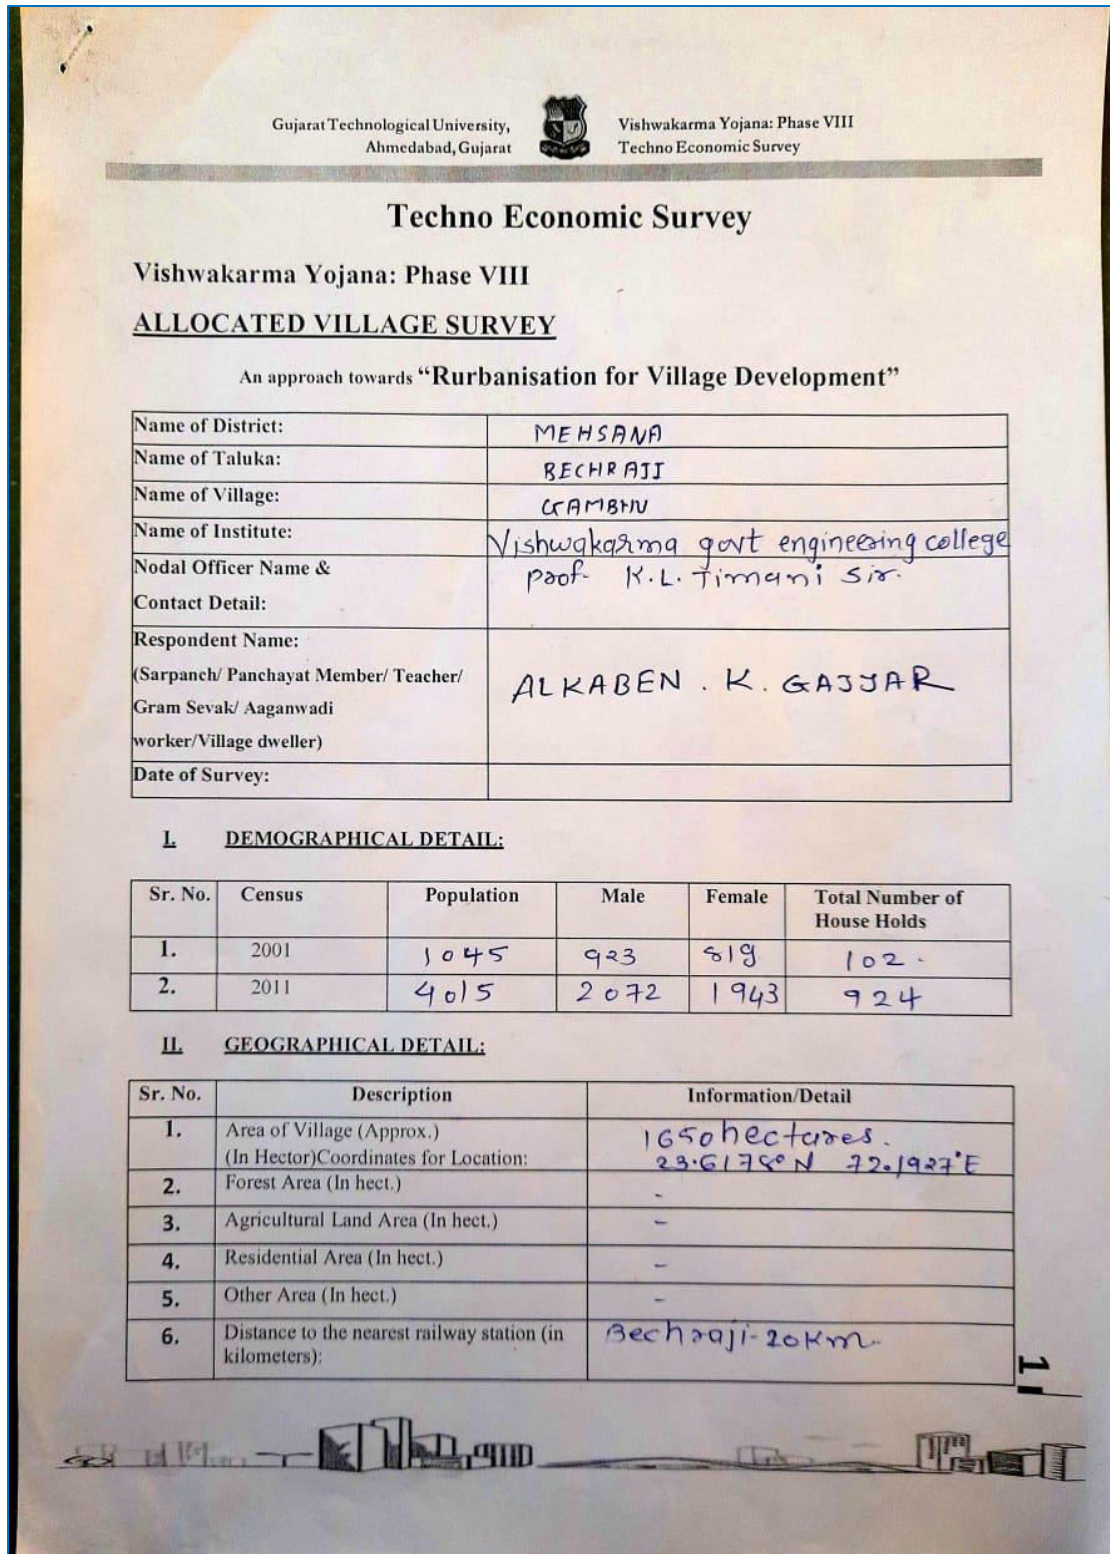 Gujarat Technological University,
Ahmedabad, Gujarat
Vishwakarma Yojana: Phase VIII
Techno Economic Survey
Techno Economic Survey
Vishwakarma Yojana: Phase VIII
ALLOCATED VILLAGE SURVEY
An approach towards “Rurbanisation for Village Development”
Name of District: MEHSANA
Name of Taluka: BECHRAJI
Name of Village: GAMBHU
Name of Institute: Vishwakarma govt engineering college
Nodal Officer Name & prof. K.L. Timani Sir.
Contact Detail:
Respondent Name:
(Sarpanch/ Panchayat Member/ Teacher/ ALKABEN . K. GAJJAR
Gram Sevak/ Aaganwadi
worker/Village dweller)
Date of Survey:
I. DEMOGRAPHICAL DETAIL:
Sr. No. Census Population Male Female Total Number of
House Holds
1. 2001 1045 923 819 102.
2. 2011 4015 2072 1943 924
II. GEOGRAPHICAL DETAIL:
Sr. No. Description Information/Detail
1. Area of Village (Approx.) 1650 hectares.
(In Hector)Coordinates for Location: 23.6178°N 72.1927°E
2. Forest Area (In hect.) -
3. Agricultural Land Area (In hect.) -
4. Residential Area (In hect.) -
5. Other Area (In hect.) -
6. Distance to the nearest railway station (in Bechraji-20Km.
kilometers):
1